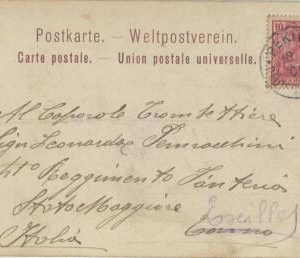 Postkarte. — Weltpostverein.
Carte postale. — Union postale universelle.
10
PEKING
Al Caporale Trombettiere
Sign Leonardo Pennacchini
Reggimento Fanteria
Stato Maggiore
Exilles
Torino
Italia